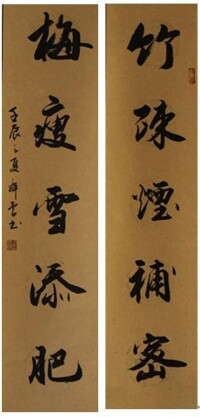 竹疎煙補密
梅瘦雪添肥
壬辰之夏